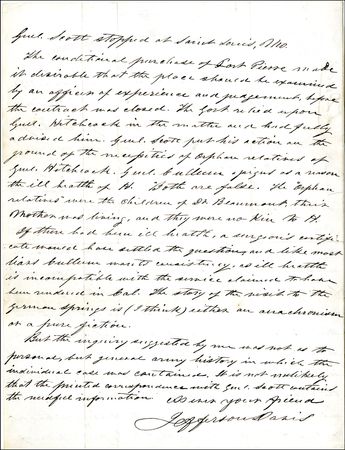 Genl. Scott stopped at Saint Louis, Mo.
The conditional purchase of Fort Pierre made
it desirable that the place should be examined
by an officer of experience and judgement, before
the contract was closed. The Govt relied upon
Genl. Hitchcock in the matter and had fully
advised him. Genl. Scott put his action on the
ground of the necessities of orphan relatives of
Genl. Hitchcock. Genl. Cullum assigns as a reason
the ill health of H. Both are false. The orphan
relatives were the children of Dr Beaumont, their
Mother was living, and they were no kin to H.
If there had been ill health, a surgeon's certifi-
cate would have settled the question, and like most
liars Cullum wants consistency, as ill health
is incompatible with the service claimed to have
been rendered in Cal. The story of the visit to the
German Springs is (I think) either an anachronism
or a pure fiction.
But the inquiry suggested by me was not as to
personal, but general army history in which the
individual case was contained. It is not unlikely
that the printed correspondence with Genl. Scott contains
the needful information. As ever your friend
Jefferson Davis